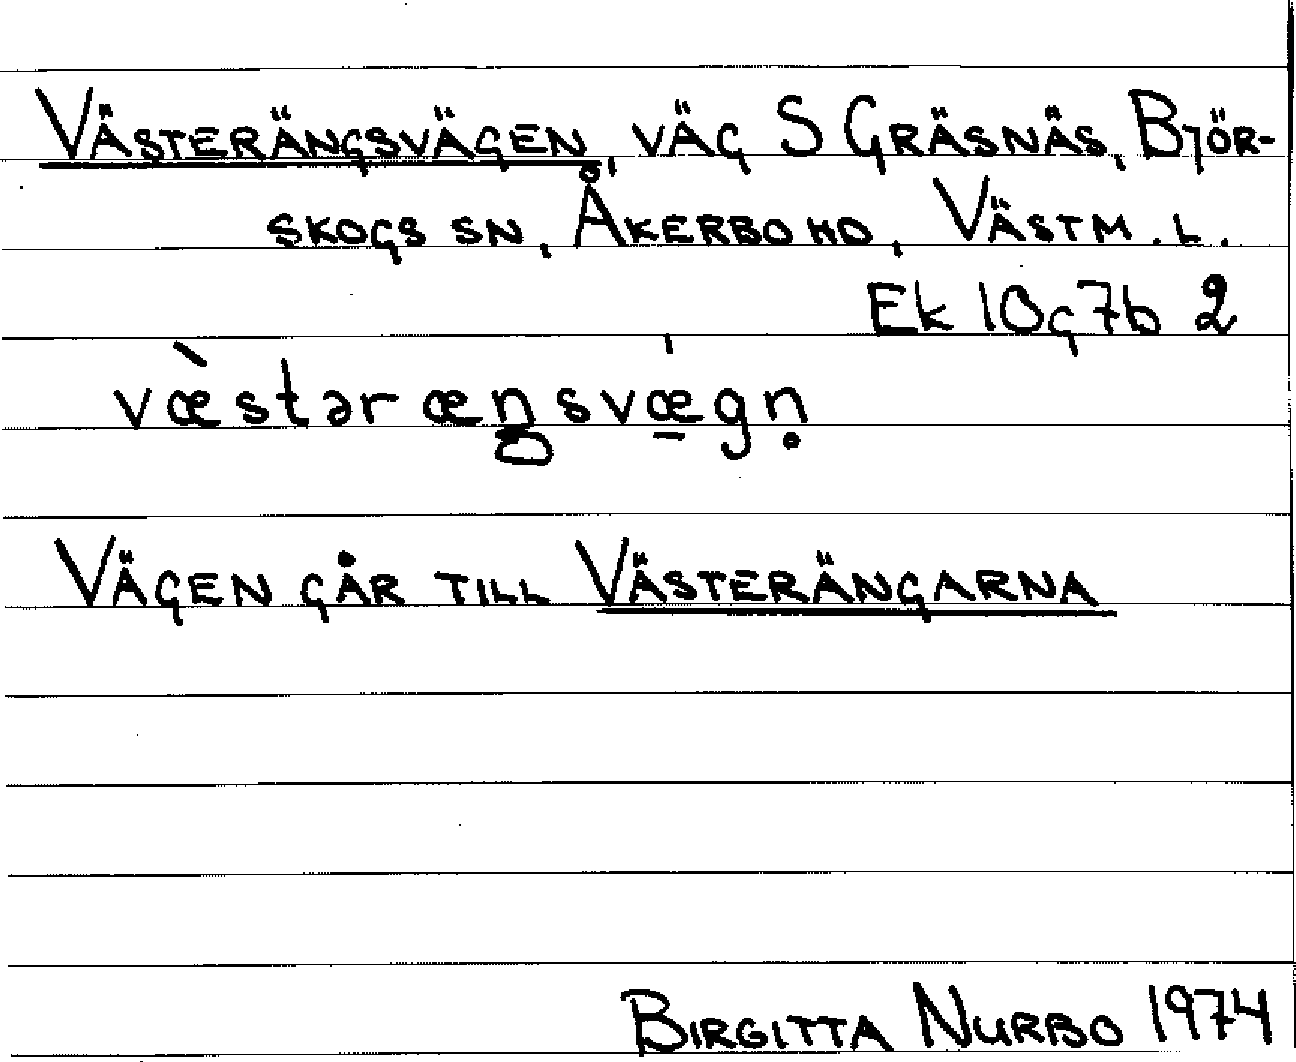 VÄSTERÄNGSVÄGEN, VÄG S GRÄSNÄS, BJÖR-
SKOGS SN, ÅKERBO HD, VÄSTM. L.
Ek 10g7b 2
væ̀stəræŋsvǽ̠gn̥
VÄGEN GÅR TILL VÄSTERÄNGARNA
BIRGITTA NURBO 1974